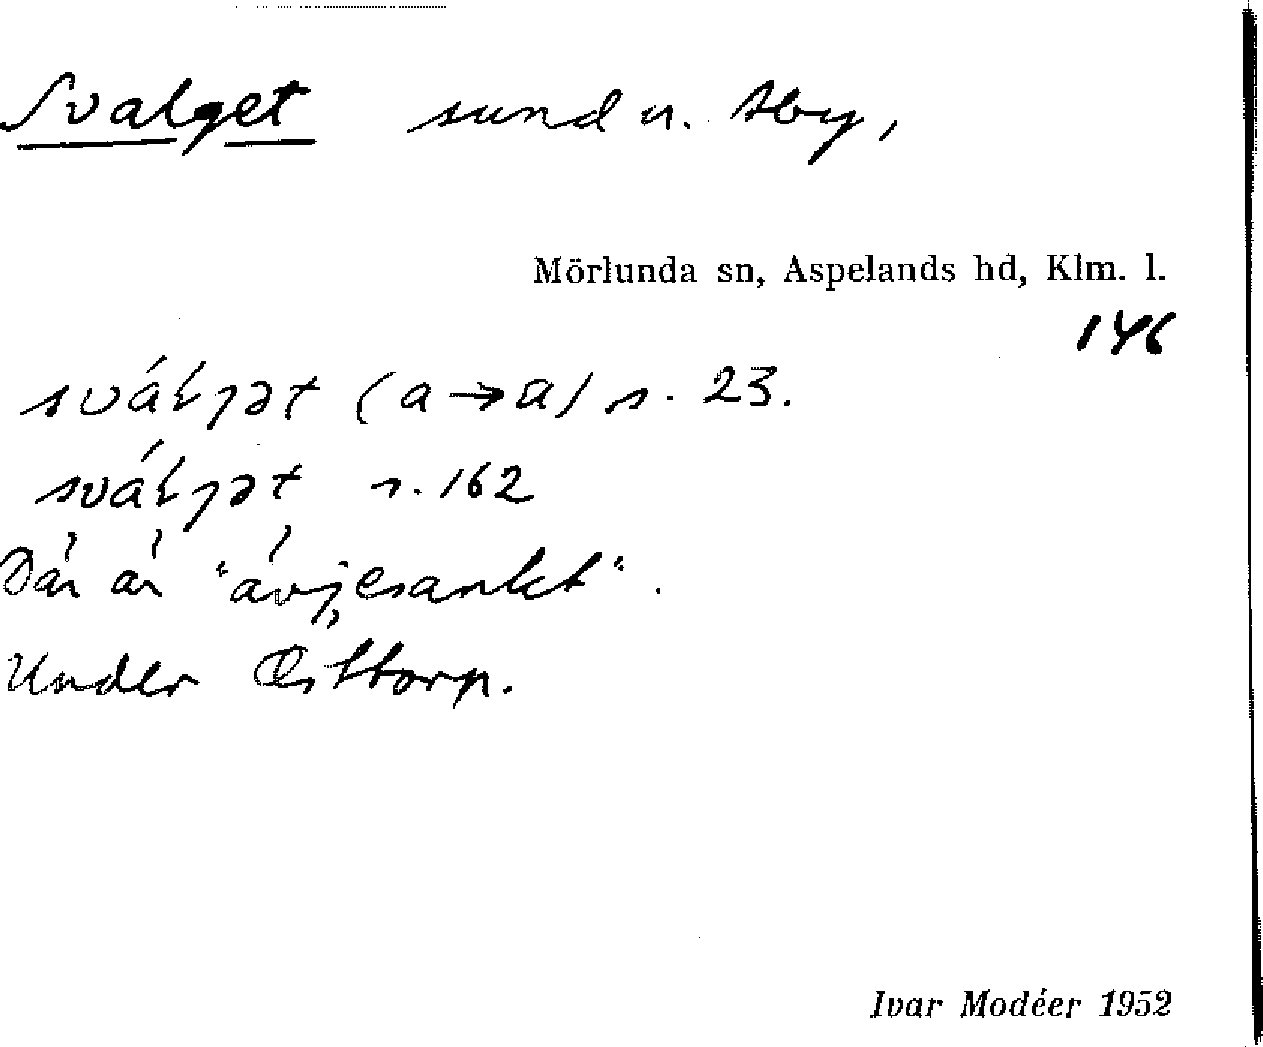 Svalget sund n. Åby,
Mörlunda sn, Aspelands hd, Klm. l.
146
sváƚɟət (a→ɑ) s. 23.
sváƚɟət s. 162
Där är "ävjesankt".
Under Östtorp.
Ivar Modéer 1952